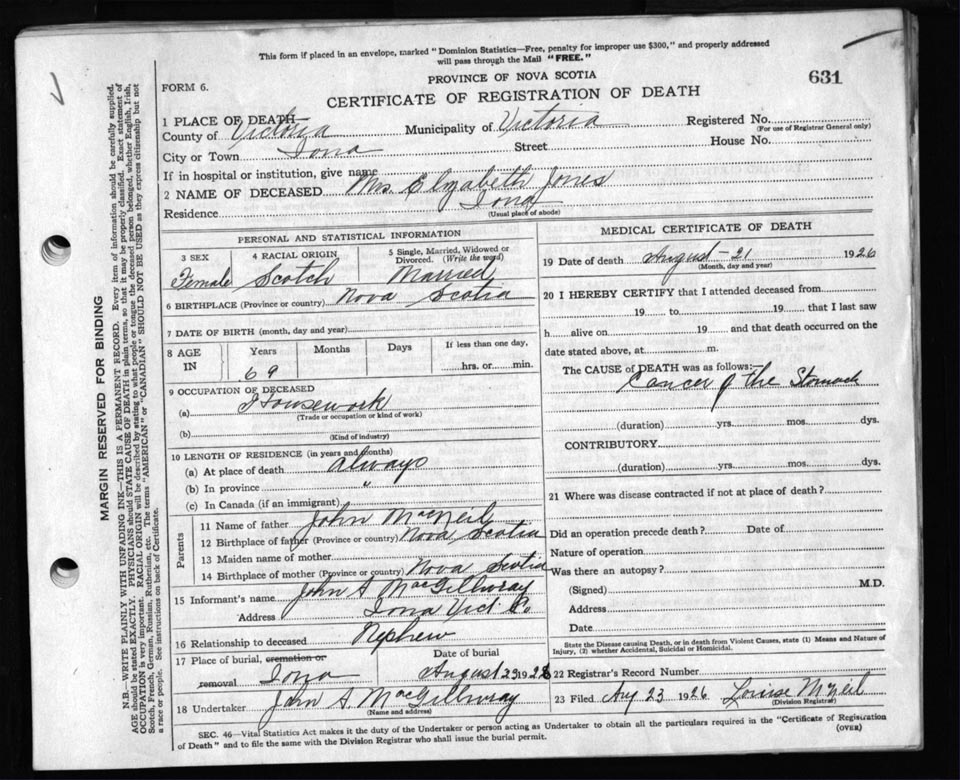 This form if placed in an envelope, marked "Dominion Statistics—Free, penalty for improper use $300," and properly addressed
will pass through the Mail "FREE."
PROVINCE OF NOVA SCOTIA
631
FORM 6.
CERTIFICATE OF REGISTRATION OF DEATH
1 PLACE OF DEATH
County of Victoria Municipality of Victoria Registered No.
(For use of Registrar General only)
City or Town Iona Street House No.
If in hospital or institution, give name
2 NAME OF DECEASED Mrs. Elizabeth Jones
Residence Iona
(Usual place of abode)
PERSONAL AND STATISTICAL INFORMATION
3 SEX 4 RACIAL ORIGIN 5 Single, Married, Widowed or Divorced. (Write the word)
Female Scotch Married
6 BIRTHPLACE (Province or country) Nova Scotia
7 DATE OF BIRTH (month, day and year)
8 AGE IN Years Months Days If less than one day,
69 hrs. or min.
9 OCCUPATION OF DECEASED
(a) Housework
(Trade or occupation or kind of work)
(b)
(Kind of industry)
10 LENGTH OF RESIDENCE (in years and months)
(a) At place of death always
(b) In province "
(c) In Canada (if an immigrant)
Parents
11 Name of father John MacNeil
12 Birthplace of father (Province or country) Nova Scotia
13 Maiden name of mother
14 Birthplace of mother (Province or country) Nova Scotia
15 Informant's name John A MacGillivray
Address Iona Vict Co
16 Relationship to deceased Nephew
17 Place of burial, cremation or removal Iona Date of burial August 23 1926
18 Undertaker John A. MacGillivray
(Name and address)
MEDICAL CERTIFICATE OF DEATH
19 Date of death August - 21 1926
(Month, day and year)
20 I HEREBY CERTIFY that I attended deceased from
19 to 19 that I last saw
h alive on 19 and that death occurred on
date stated above, at m.
The CAUSE OF DEATH was as follows:—
Cancer of the Stomach
(duration) yrs. mos. dys.
CONTRIBUTORY
(duration) yrs. mos. dys.
21 Where was disease contracted if not at place of death?
Did an operation precede death? Date of
Nature of operation
Was there an autopsy?
(Signed) M.D.
Address
Date
State the Disease causing Death, or in death from Violent Causes, state (1) Means and Nature of
Injury, (2) whether Accidental, Suicidal or Homicidal.
22 Registrar's Record Number
23 Filed Aug 23 1926 Louise McNeil
(Division Registrar)
SEC. 46—Vital Statistics Act makes it the duty of the Undertaker or person acting as Undertaker to obtain all the particulars required in the "Certificate of Registration
of Death" and to file the same with the Division Registrar who shall issue the burial permit.
(OVER)
MARGIN RESERVED FOR BINDING
N.B.—WRITE PLAINLY WITH UNFADING INK—THIS IS A PERMANENT RECORD. Every item of information should be carefully supplied.
AGE should be stated EXACTLY. PHYSICIANS should STATE CAUSE OF DEATH in plain terms, so that it may be properly classified. Exact statement of
OCCUPATION is very important. RACIAL ORIGIN will be described by stating to what people or tongue the deceased person belonged, whether English, Irish,
Scotch, French, German, Russian, Ruthenian, etc. The terms "AMERICAN" or "CANADIAN" SHOULD NOT BE USED as they express citizenship but not
a race or people. See instructions on back of Certificate.